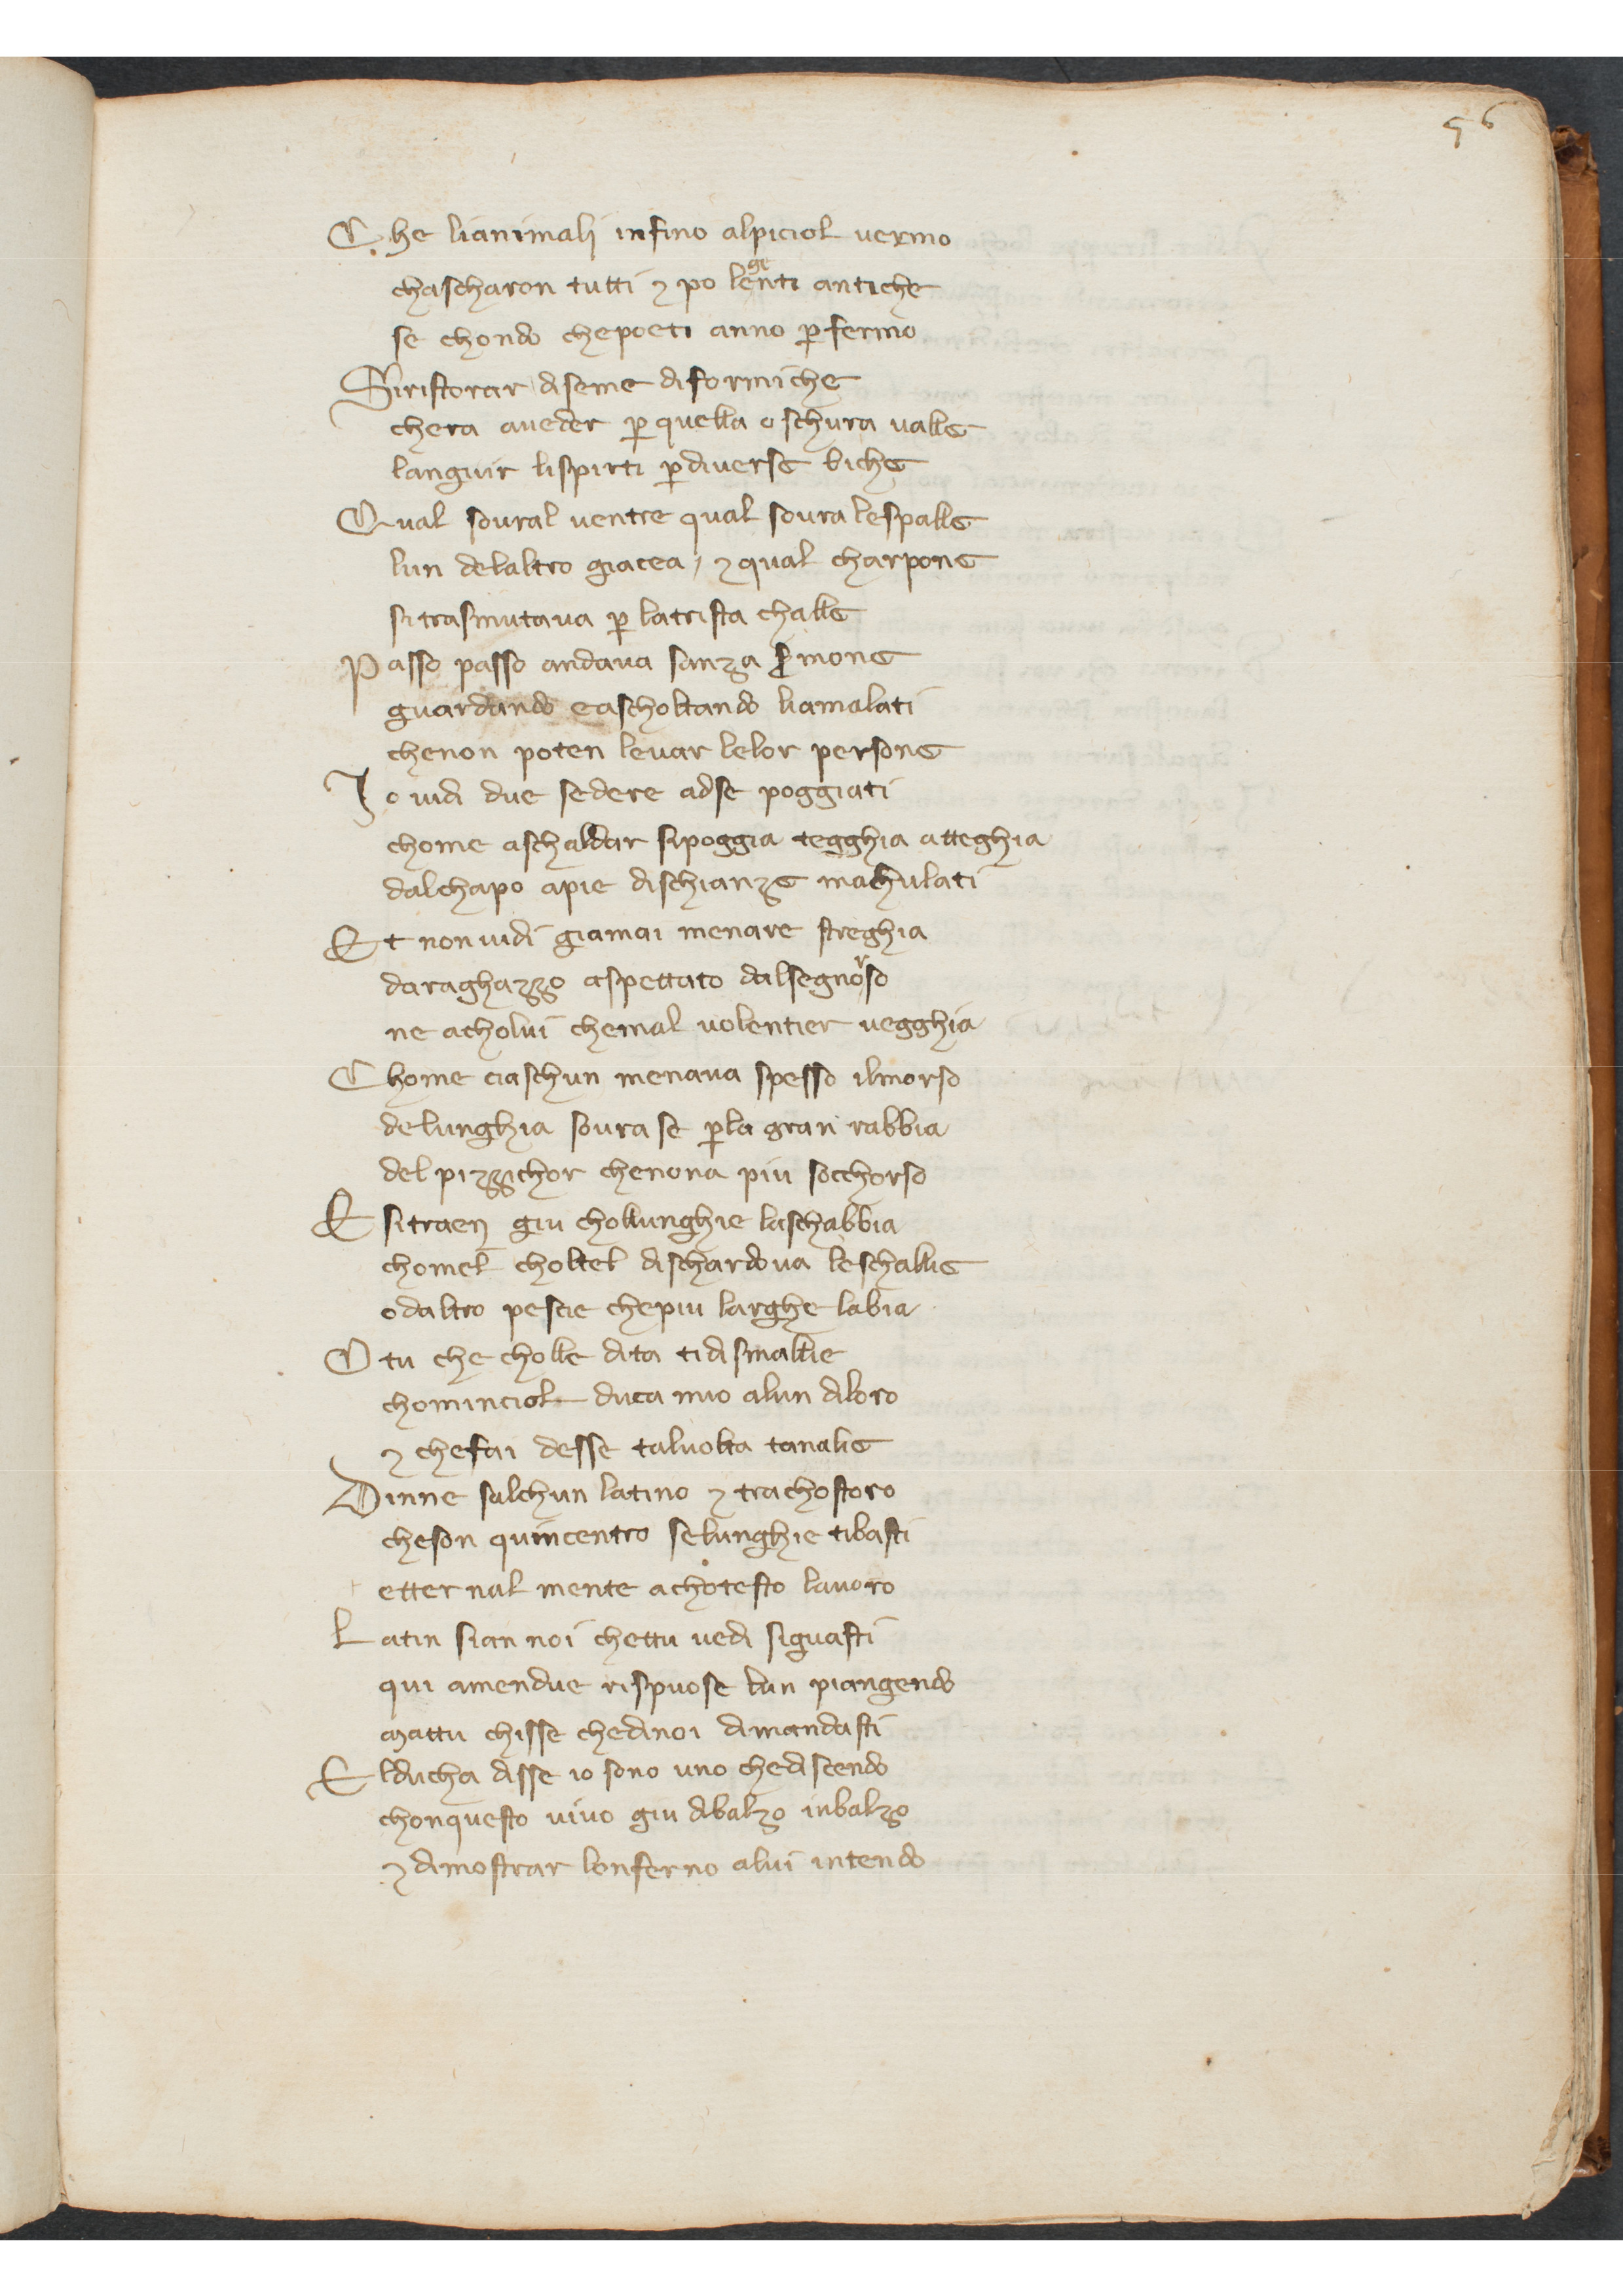 56
Che lianimali infino alpiciol vermo
chascharon tutti ⁊ po legenti antiche
se chondo chepoeti anno ꝑfermo
Siristorar diseme diformiche
chera aveder ꝑ quella oschura valle
languir lispirti ꝑdiverse biche
Qual soural ventre qual soura lespalle
lun delaltro giacea / ⁊ qual charpone
sitrasmutava ꝑ latrista challe
Passo passo andava sanza ẜmone
guardando eascholtando liamalati
chenon poten levar lelor persone
Io vidi due sedere adse poggiati
chome aschaldar sipoggia tegghia atteghia
dalchapo apie dischianze machulati
Et non vidi giamai menare streghia
daraghazzo aspettato dalsegnorso
ne acholui chemal volentier vegghia
Chome ciaschun menava spesso ilmorso
delunghia soura se ꝑla gran rabbia
del pizzichor chenona piu socchorso
E sitraen giu chollunghie laschabbia
chomel choltel dischardova leschallie
odaltro pescie chepiu larghe labia
O tu che cholle dita tidismallie
chominciol duca mio alun diloro
⁊ chefai desse talvolta tanalie
Dinne salchun latino ⁊ trachostoro
cheson quincentro selunghie tibasti
etternal mente achotesto lavoro
Latin sian noi chettu vedi siguasti
qui amendue rispuose lun piangendo
mattu chisse chedinoi dimandasti
Elducha disse io sono uno chediscendo
chonquesto vivo giu dibalzo inbalzo
⁊ dimostrar lonferno alui intendo